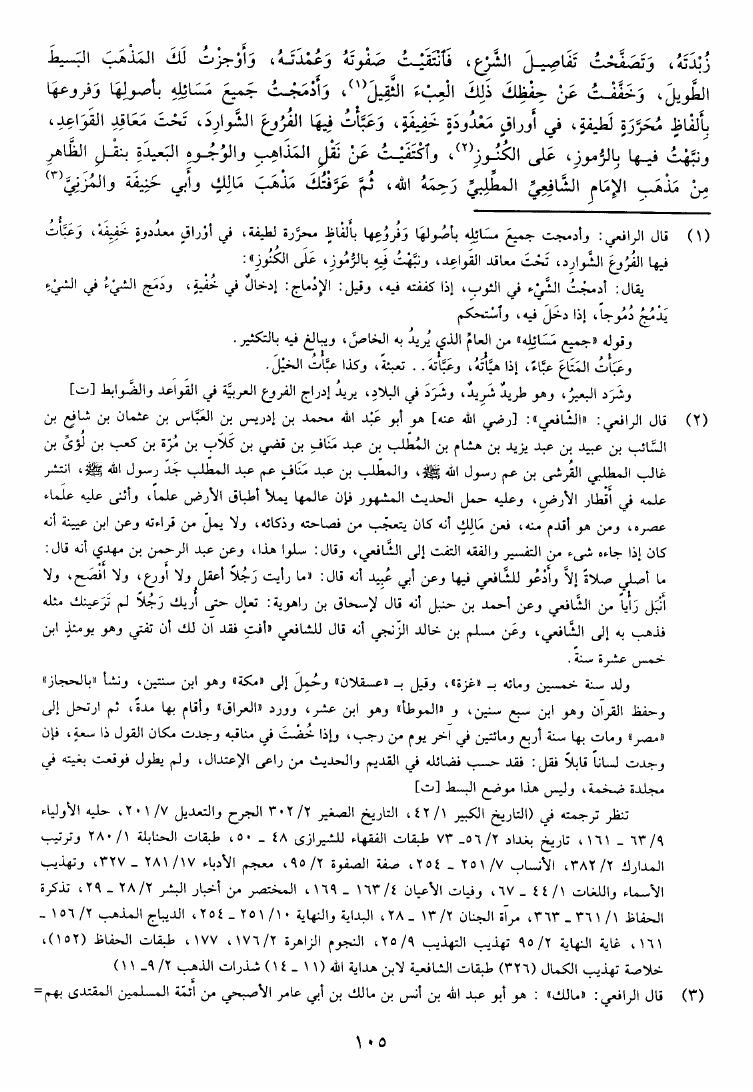 زُبْدَتَهُ، وَتَصَفَّحْتُ تَفَاصِيلَ الشَّرْعِ، فَانْتَقَيْتُ صَفْوَتَهُ وَعُمْدَتَهُ، وَأَوْجَزْتُ لَكَ المَذْهَبَ البَسِيطَ
الطَّوِيلَ، وَخَفَّفْتُ عَنْ حِفْظِكَ ذَلِكَ العِبْءَ الثَّقِيلَ(١)، وَأَدْمَجْتُ جَمِيعَ مَسَائِلِهِ بأصولِهَا وَفروعِهَا
بِأَلْفَاظٍ مُحَرَّرَةٍ لَطِيفَةٍ، في أوراقٍ مَعْدُودَةٍ خَفِيفَةٍ، وَعَبَّأْتُ فِيهَا الفُرُوعَ الشَّوارِدَ، تَحْتَ مَعَاقِدِ القَوَاعِدِ،
ونَبَّهْتُ فيها بِالرُّموزِ، عَلى الكُنُوزِ(٢)، واكْتَفَيْتُ عَنْ نَقْلِ المَذَاهِبِ والوُجُوهِ البَعِيدَةِ بنقْلِ الظَّاهِرِ
مِنْ مَذْهَبِ الإِمَامِ الشَّافعِيِّ المطَّلِبِيِّ رَحِمَهُ الله، ثُمَّ عَرَّفْتُكَ مَذْهَبَ مَالِكٍ وأَبي حَنِيفَةَ والمُزَنِيِّ(٣)
(١) قال الرافعي: وأدمجت جميعَ مسَائِلِه بأصُولِهَا وَفُرُوعِها بِألفَاظٍ محرَّرة لطيفة، في أوْراقٍ معدُودةٍ خَفِيفَة، وَعَبَّأْتُ
فيها الفُرُوعَ الشَّوارِدَ، تَحْتَ معاقد القَواعِد، ونَبَّهْتُ فِيهِ بِالرُّمُوزِ، عَلَى الكُنُوزِ»:
يقال: أدمجْتُ الشَّيْءَ في الثوبِ، إذا كففته فيه، وقيل: الإدْماج: إدخالٌ في خُفْيةٍ، ودَمَجَ الشيْءُ في الشيْءِ
يَدْمُجُ دُمُوجاً، إذا دخَلَ فيه، واسْتحكم
وقوله «جميع مَسَائِلِه» من العامِّ الذي يُريدُ به الخاصَّ، ويبالغ فيه بالتكثير.
وعَبَأْتُ المَتَاعَ عَبْأً، إذا هيَّأْتُهُ، وعَبَّأْتَهُ.. تعبئةً، وكذا عبَّأْتُ الخيْلَ.
وشَرَد البعيرُ، وهو طريدٌ شَريدٌ، وشَرَدَ في البلادِ، يريدُ إدراج الفروع العربيَّة في القَوَاعد والضَّوابط [ت]
(٢) قال الرافعي: «الشّافعي»: [رضي الله عنه] هو أبو عَبْد الله محمد بن إدريس بن العَبَّاس بن عثمان بن شافع بن
السَّائب بن عبيد بن عبد يزيد بن هشام بن المُطَّلب بن عبد مَنَافِ بن قضي بن كَلَاب بن مُرّة بن كعب بن لُؤَيِّ بن
غالب المطلبي القُرشي بن عم رسول الله ﷺ، والمطّلب بن عبد مَنَاف عم عبد المطلب جَدّ رسول الله ﷺ، انتشر
علمه في أقْطار الأرض، وعليه حمل الحديث المشهور فإن عالمها يملأ أطباق الأرض علماً، وأثنى عليه علماء
عصره، ومن هو أقدم منه، فعن مَالِكٍ أنه كان يتعجّب من فصاحته وذكائه، ولا يملّ من قراءته وعن ابن عيينة أنه
كان إذا جاءه شىء من التفسير والفقه التفت إلى الشَّافعي، وقال: سلوا هذا، وعن عبد الرحمن بن مهدي أنه قال:
ما أصلي صلاةً إلاَّ وأدْعُو للشَّافعي فيها وعن أبي عُبِيد أنه قال: «ما رأيت رَجُلاً أعقل ولا أورع، ولا أفْصَح، ولا
أنْبَل رَأْياً من الشَّافعي وعن أحمد بن حنبل أنه قال لإسحاق بن راهوية: تعال حتى أُريك رَجُلاً لم تَرَعينك مثله
فذهب به إلى الشَّافعي، وعَن مسلم بن خالد الزّنجي أنه قال للشافعي «أفتِ فقد آن لك أن تفتي وهو يومئذٍ ابن
خمس عشرة سنةً.
ولد سنة خمسين ومائه بـ «غزة»، وقيل بـ «عسقلان» وحُمِلَ إلى «مكة» وهو ابن سنتين، ونشأ «بالحجاز»
وحفظ القرآن وهو ابن سبع سنين، و «الموطأ» وهو ابن عشر، وورد «العراق» وأقام بها مدةً، ثم ارتحل إلى
«مصر» ومات بها سنة أربع ومائتين في آخر يوم من رجب، وإذا خُضْتَ في مناقبه وجدت مكان القول ذا سعةٍ، فإن
وجدت لساناً قابلاً فقل: فقد حسب فضائله في القديم والحديث من راعى الإعتدال، ولم يطول فوقعت بغيته في
مجلدة ضخمة، وليس هذا موضع البسط [ت]
تنظر ترجمته في (التاريخ الكبير ١/٤٢، التاريخ الصغير ٢/٣٠٢ الجرح والتعديل ٧/٢٠١، حليه الأولياء
٩/٦٣ - ١٦١، تاريخ بغداد ٢/٥٦ـ ٧٣ طبقات الفقهاء للشيرازى ٤٨ - ٥٠، طبقات الحنابلة ١/٢٨٠ وترتيب
المدارك ٢/٣٨٢، الأنساب ٧/٢٥١ - ٢٥٤، صفة الصفوة ٢/٩٥، معجم الأدباء ١٧/٢٨١ - ٣٢٧، وتهذيب
الأسماء واللغات ١/٤٤ - ٦٧، وفيات الأعيان ٤/١٦٣ - ١٦٩، المختصر من أخبار البشر ٢/٢٨ - ٢٩، تذكرة
الحفاظ ١/٣٦١ - ٣٦٣، مرآة الجنان ٢/١٣ - ٢٨، البداية والنهاية ١٠/٢٥١ - ٢٥٤، الديباج المذهب ٢/١٥٦ -
١٦١، غاية النهاية ٢/٩٥ تهذيب التهذيب ٩/٢٥، النجوم الزاهرة ٢/١٧٦، ١٧٧، طبقات الحفاظ (١٥٢)،
خلاصة تهذيب الكمال (٣٢٦) طبقات الشافعية لابن هداية الله (١١ - ١٤) شذرات الذهب ٢/٩ـ ١١)
(٣) قال الرافعي: «مالك» : هو أبو عبد الله بن أنس بن مالك بن أبي عامر الأصبحي من أئمّة المسلمين المقتدى بهم=
١٠٥